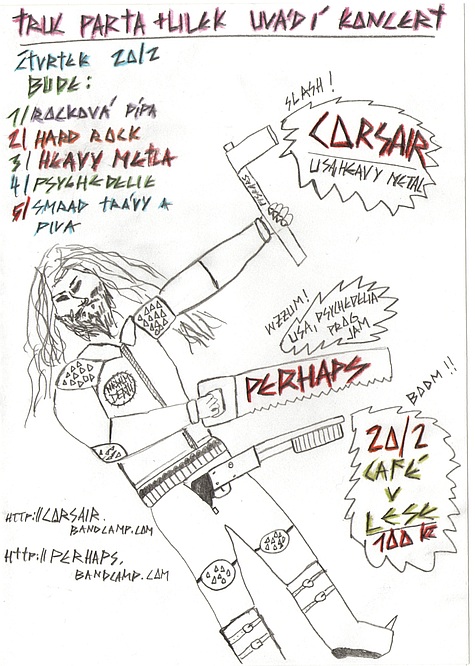 TRUC PARTA + LILEK UVÁDÍ KONCERT
ČTVRTEK 20/2
BUDE:
1/ ROCKOVÁ PÍPA
2/ HARD ROCK
3/ HEAVY METLA
4/ PSYCHEDELIE
5/ SMRAD TRÁVY A
PIVA
SLASH!
CORSAIR
USA, HEAVY METAL
WZZUM!
USA, PSYCHEDELIA
PROG
JAM
PERHAPS
BOOM!!
20/2
CAFÉ
V
LESE
100 Kč
HTTP://CORSAIR.
BANDCAMP.COM
HTTP://PERHAPS.
BANDCAMP.COM